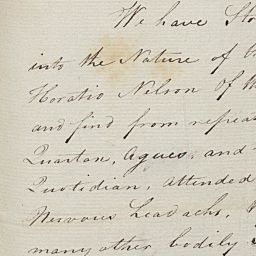 We have
into the Nature of
Horatio Nelson Of
and find from
Quartan, Agues, and
Quotidian, attended
Nervous headachs,
many other bodily